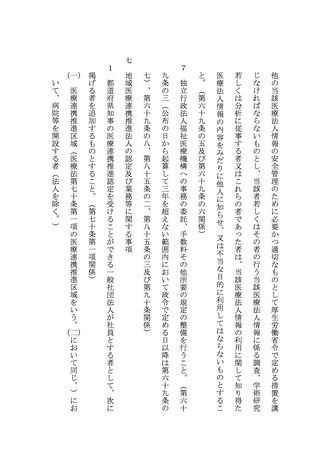 他の当該医療法人情報の安全管理のために必要かつ適切なものとして厚生労働省令で定める措置を講
じなければならないものとし、当該者若しくはその者の行う当該医療法人情報に係る調査、学術研究
若しくは分析に従事する者又はこれらの者であった者は、当該医療法人情報の利用に関して知り得た
医療法人情報の内容をみだりに他人に知らせ、又は不当な目的に利用してはならないものとするこ
と。（第六十九条の五及び第六十九条の六関係）
７　独立行政法人福祉医療機構への事務の委託、手数料その他所要の規定の整備を行うこと。（第六十
九条の三（公布の日から起算して三年を超えない範囲内において政令で定める日以降は第六十九条の
七）、第六十九条の八、第八十五条の二、第八十五条の三及び第九十条関係）
七　地域医療連携推進法人の認定及び業務等に関する事項
１　都道府県知事の医療連携推進認定を受けることができる一般社団法人が社員とする者として、次に
掲げる者を追加するものとすること。（第七十条第一項関係）
㈠　医療連携推進区域（医療法第七十条第一項の医療連携推進区域をいう。㈡において同じ。）にお
いて、病院等を開設する者（法人を除く。）